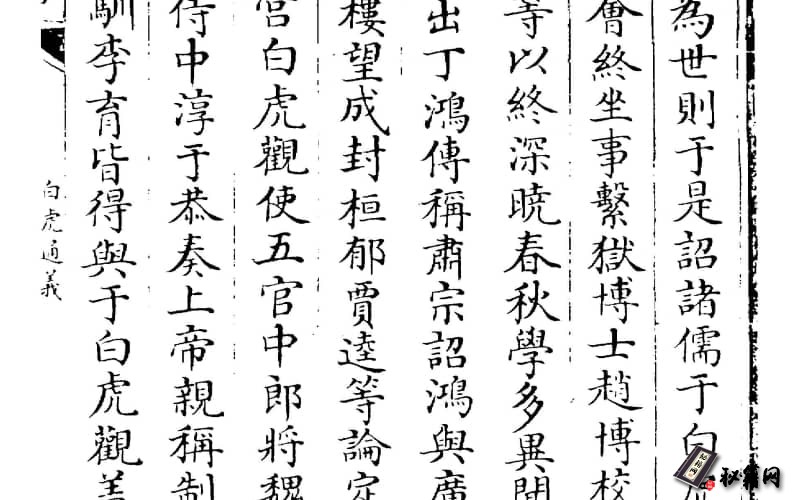 為世則于是詔諸儒于白
會終坐事繫獄博士趙博校
等以終深曉春秋學多異聞
出丁鴻傳稱肅宗詔鴻與廣
樓望成封桓郁賈逵等論定
宫白虎觀使五官中郎將魏
侍中淳于恭奏上帝親稱制
馴李育皆得與于白虎觀葢
白虎通義
秘籍网